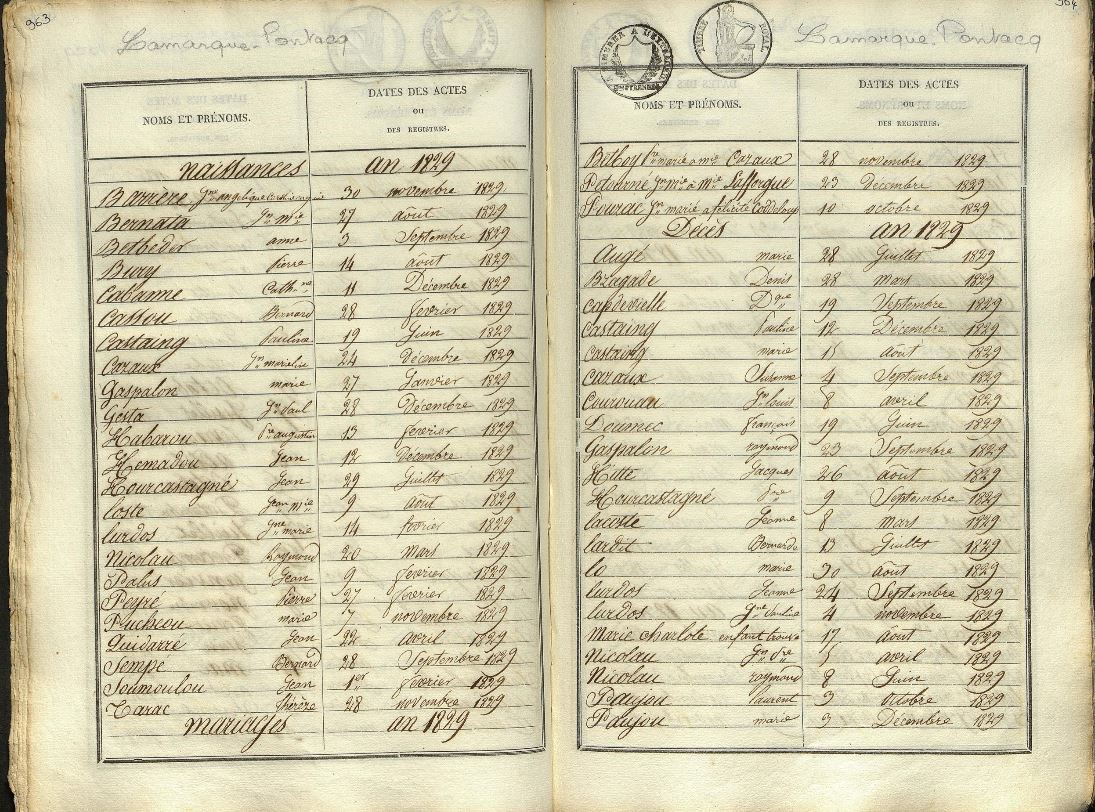 963
Lamarque-Pontacq
NOMS ET PRÉNOMS.
DATES DES ACTES
OU
DES REGISTRES.
naissances an 1829
Barrière, Jne angelique 30 novembre 1829
Bernata Jn Mie 27 août 1829
Betbeder anne 3 Septembre 1829
Burg Pierre 14 août 1829
Cabanne Cathne 11 Décembre 1829
Cassou Bernard 28 fevrier 1829
Castaing Pauline 19 Juin 1829
Caraux Jn 24 Décembre 1829
Gaspalon marie 27 Janvier 1829
Gesta Jn Paul 28 Décembre 1829
Habarou Pre augustin 13 fevrier 1829
Hemadou Jean 12 Décembre 1829
Hourcastagné Jean 29 Juillet 1829
Coste Jean Mie 9 août 1829
lurdos Jne marie 14 février 1829
Nicolau Raymond 20 Mars 1829
Palus Jean 9 fevrier 1829
Peyré Pierre 27 fevrier 1829
Pucheou marie 7 novembre 1829
Guidarré Jean 22 avril 1829
Sempé Bernard 28 Septembre 1829
Soumoulou Jean 1er février 1829
Tarac Thérèze 28 novembre 1829
mariages an 1829
964
Lamarque-Pontacq
TIMBRE ROYAL
NOMS ET PRÉNOMS.
DATES DES ACTES
OU
DES REGISTRES.
Betboy marie a mie Caraux 28 novembre 1829
Detourné Jn Mie a Mie Lafforgue 23 Décembre 1829
Pourde Jn marie a felicité 10 octobre 1829
Décès an 1829
Augé marie 28 Juillet 1829
Bragade Denis 28 mars 1829
Capdevielle Dque 19 Septembre 1829
Castaing Pauline 12 Décembre 1829
Castaing marie 15 août 1829
Caraux Suzanne 4 Septembre 1829
Courouau Jn louis 8 avril 1829
Doumec françois 19 Juin 1829
Gaspalon raymond 23 Septembre 1829
Hitte Jacques 26 août 1829
Hourcastagné 9 Septembre 1829
lacoste Jeanne 8 mars 1829
lardit Bernarde 13 Juillet 1829
lo marie 30 août 1829
lurdos Jeanne 24 Septembre 1829
lurdos Jne Pauline 4 novembre 1829
Marie charlote enfant trouvé 17 août 1829
Nicolau Jn 5 avril 1829
Nicolau raymond 8 Juin 1829
Paujou laurent 3 Octobre 1829
Paujou marie 3 Décembre 1829